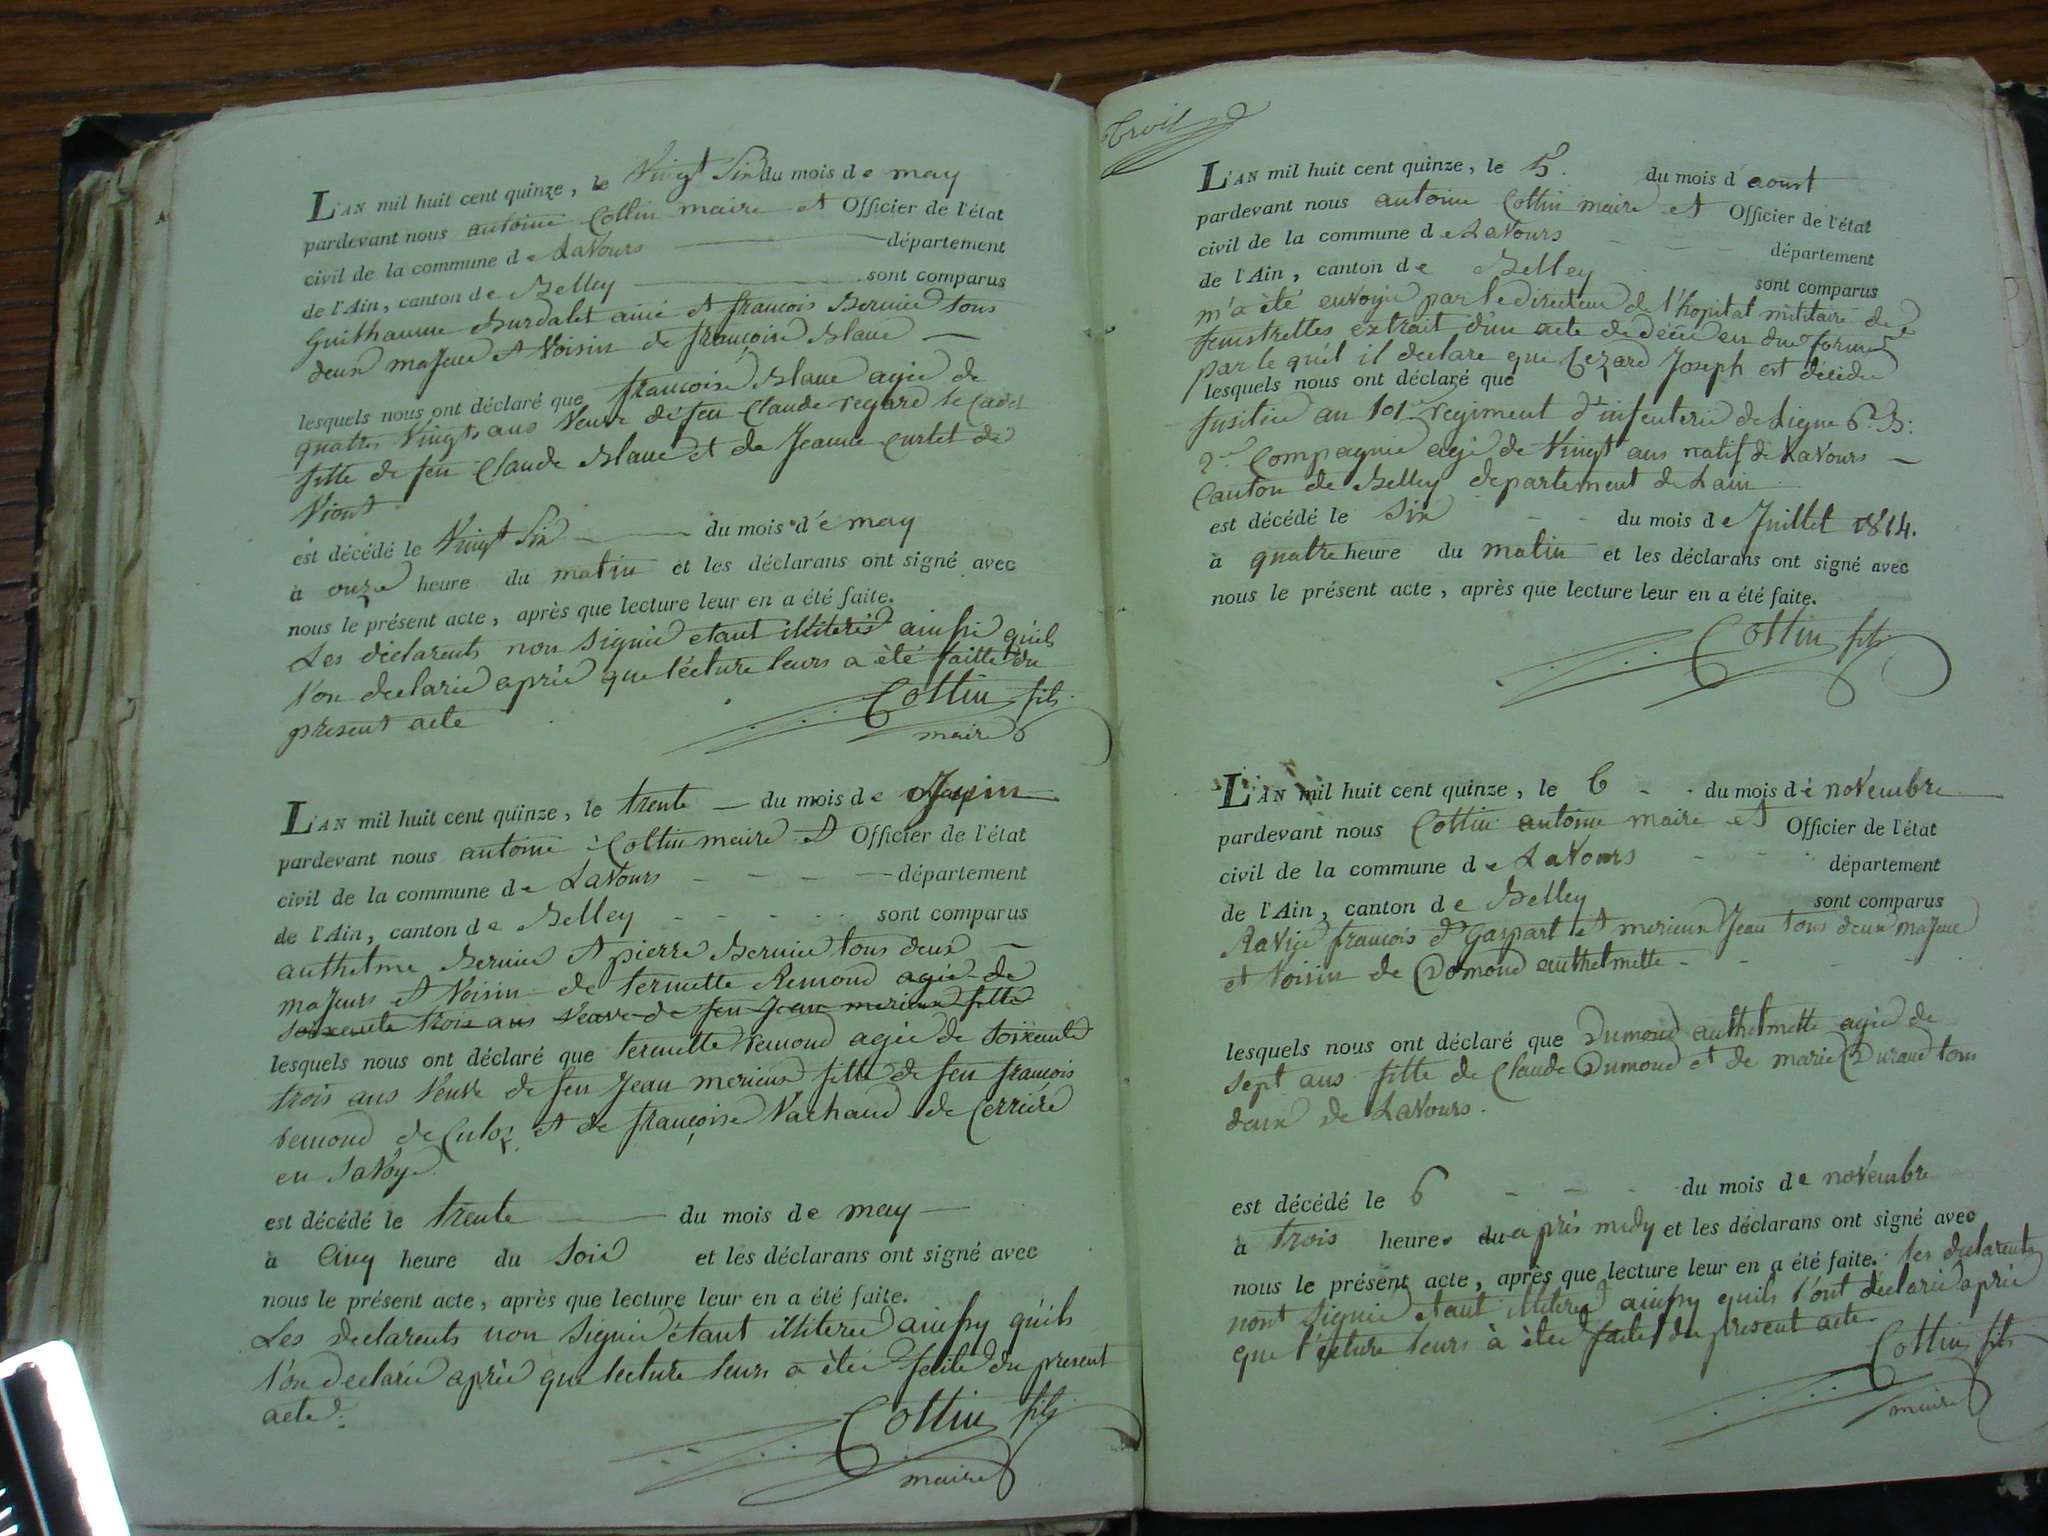 L'AN mil huit cent quinze, le Vingt Six du mois de may
pardevant nous antoine Cottin maire et Officier de l'état
civil de la commune de Lavours département
de l'Ain, canton de Belley sont comparus
Guilhaume Burdalet ainé et francois Bernier tous
deux majeur et Voisin de françoise Blanc
lesquels nous ont déclaré que francoise Blanc agée de
quatre Vingts ans Veuve de feu Claude regard le Cadet
fille de feu Claude Blanc et de Jeanne Curtet de
Viont
est décédé le Vingt Six du mois de may
à onze heure du matin et les déclarans ont signé avec
nous le présent acte, après que lecture leur en a été faite.
Les déclarents non signié etant illiteré ainsi qu'ils
l'on declarié aprié que lécture leurs a été faitte du
present acte
Cottin fils
maire
L'AN mil huit cent quinze, le trente du mois de Juin
pardevant nous antoine Cottin maire et Officier de l'état
civil de la commune de Lavours département
de l'Ain, canton de Belley sont comparus
anthelme Bernier et pierre Bernier tous deux
majeurs et Voisin de termette Remond agée de
soixente trois ans Veuve de feu Jean merieux fille
lesquels nous ont déclaré que termette remond agée de soixente
trois ans Veuve de feu Jean merieux fille de feu francois
remond de Culoz et de françoise Vachaud de Cerriere
en Savoye
est décédé le trente du mois de may
à Cinq heure du Soir et les déclarans ont signé avec
nous le présent acte, après que lecture leur en a été faite.
Les declarents non signié étant illiteré ainsy qu'ils
l'on declarié aprié que lecture leurs a étéé faite du present
acte.
Cottin fils
maire
Troil
L'AN mil huit cent quinze, le 15. du mois d'aoust
pardevant nous antoine Cottin maire et Officier de l'état
civil de la commune de Lavours département
de l'Ain, canton de Belley sont comparus
m'a été envoyée par le directeur de l'hopital militaire de
fenestrelles extrait d'un acte de décé en due forme
par le quél il declare que Cezard Joseph est décédé
lesquels nous ont déclaré que
fusilier au 101e regiment d'infenterie de Ligne 6e B:
2e Compagnie agé de Vingt ans natif de Lavours
Canton de Belley departement de Lain
est décédé le Six du mois de Juillet 1814.
à quatre heure du matin et les déclarans ont signé avec
nous le présent acte, après que lecture leur en a été faite.
Cottin fils
L'AN mil huit cent quinze, le 6 du mois de novembre
pardevant nous Cottin antoine maire et Officier de l'état
civil de la commune de Lavours département
de l'Ain, canton de Belley sont comparus
Ravier francois dt Gaspart et merieux Jean tous deux majeur
et Voisin de Domond anthelmette
lesquels nous ont déclaré que Dumond anthelmette agée de
sept ans fille de Claude Dumond et de marie Durand tous
deux de Lavours.
est décédé le 6 du mois de novembre
à trois heure du après midy et les déclarans ont signé avec
nous le présent acte, après que lecture leur en a été faite. les declarents
nont signié etant illiteré ainsy quils l'ont déclarié aprié
que lécture leurs à étée faite du present acte
Cottin fils
maire